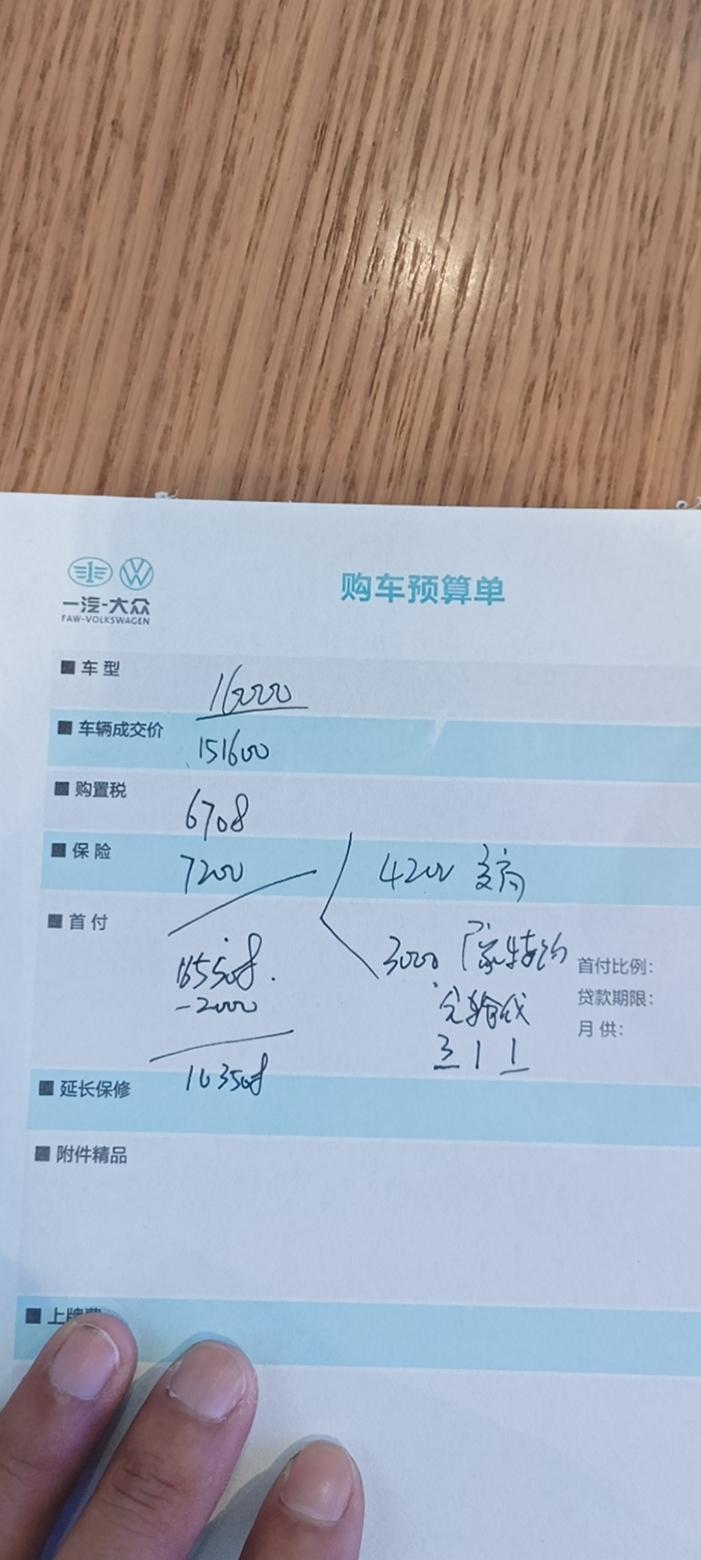 一汽-大众
FAW-VOLKSWAGEN
购车预算单
车型
16000
车辆成交价
151600
购置税
6708
保险
7200
4200
首付
165508.
3000
首付比例：
-2000
贷款期限：
月供：
3 1 1
延长保修
163508
附件精品
上牌费